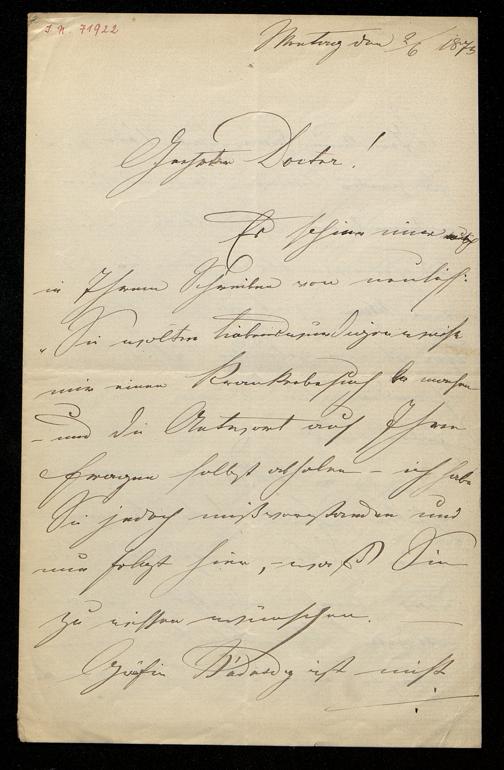 I. N. 71922
Montag den 2/6 1873
Geehrter Doctor!
Es schien mir
in Ihrem Schreiben von neulich:
"Sie wollten liebenswürdigerweise
mir einen Krankenbesuch machen
– und die Antwort auf Ihre
Fragen selbst abholen – ich habe
Sie jedoch mißverstanden und
nun folgt hier, was Sie
zu wissen wünschen.
Gräfin ist nicht